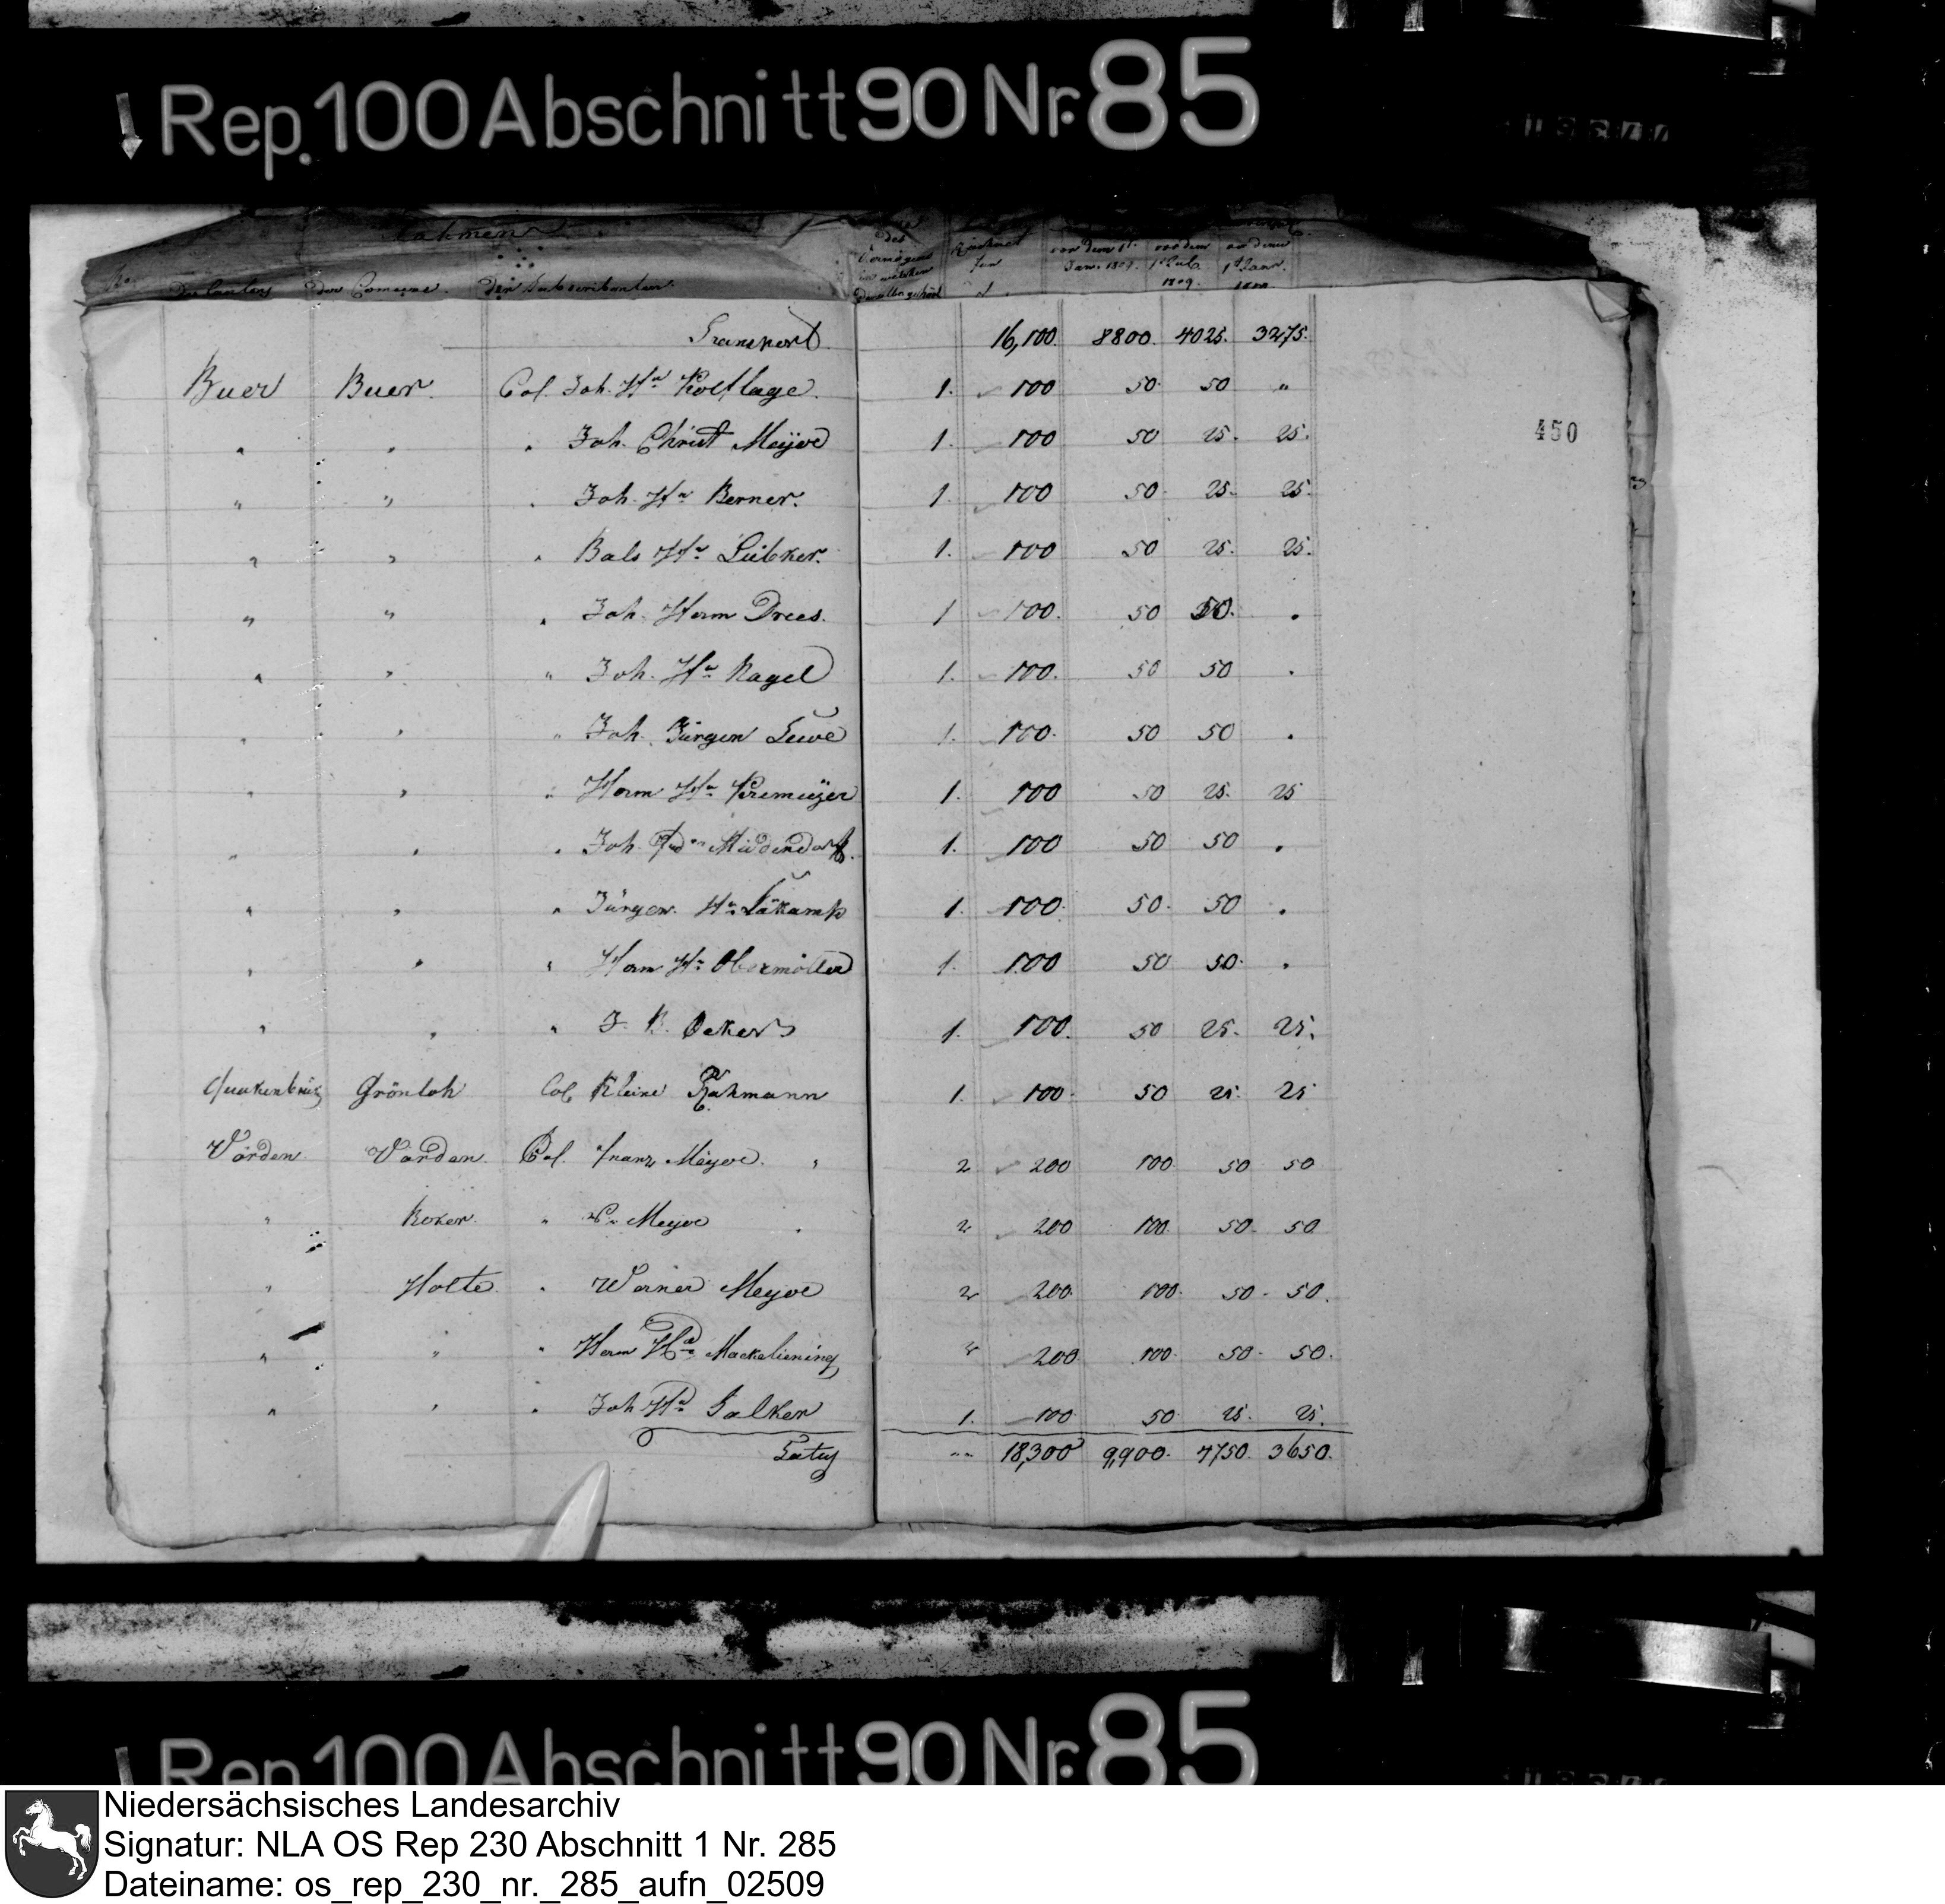 Rep. 100 Abschnitt 90 Nr. 85
Nahmen des
No. Des Cantons der Comeune. Der Subscribenten. Vermögens derselbe gehört vor dem 1t. Jan. 1809. vor dem 1t Jul. 1809. vor dem 1t Janr.
Transport 16,100. 8800. 4025. 3275.
Buer Buer. Col. Joh. Hr Kolflage. 1. 100 50. 50 "
" " " Joh. Christ Meyer 1. 100 50 25. 25.
" " " Joh. Hr Berner. 1. 100 50. 25. 25.
" " " Bals Hr Lübker. 1. 100 50 25. 25.
" " " Joh. Herm Drees. 1 100. 50 50. .
" " " Joh. Hr Nagel 1. 100. 50 50 .
" " " Joh. Jürgen Luwe 1. 100. 50 50 .
" " " Herm Hr Kremeyer 1. 100 50 25. 25
" " " Joh. Middendorf. 1. 100 50 50 .
" " " Jürgen. Hr Lükamp 1. 100. 50. 50 .
" " " Herm Hr Obermöller 1. 100 50 50. .
" " " J. B. Oekers 1. 100. 50 25. 25.
Quakenbrück Grönloh Col Kleine Rahmann 1. 100. 50 25. 25
Vörden. Vörden. Col. Franz Meyer. " 2 200 100 50 50
" " Meyer . 2 200 100. 50. 50
" Holte. " Werner Meyer 2 200. 100. 50. 50.
" " " Herm Hr 2 200. 100. 50. 50.
" " " Joh Hr Falker 1. 100 50. 25. 25.
Latus " " 18,300 9,900. 4750. 3650.
450
Rep. 100 Abschnitt 90 Nr. 85
Niedersächsisches Landesarchiv
Signatur: NLA OS Rep 230 Abschnitt 1 Nr. 285
Dateiname: os_rep_230_nr._285_aufn_02509